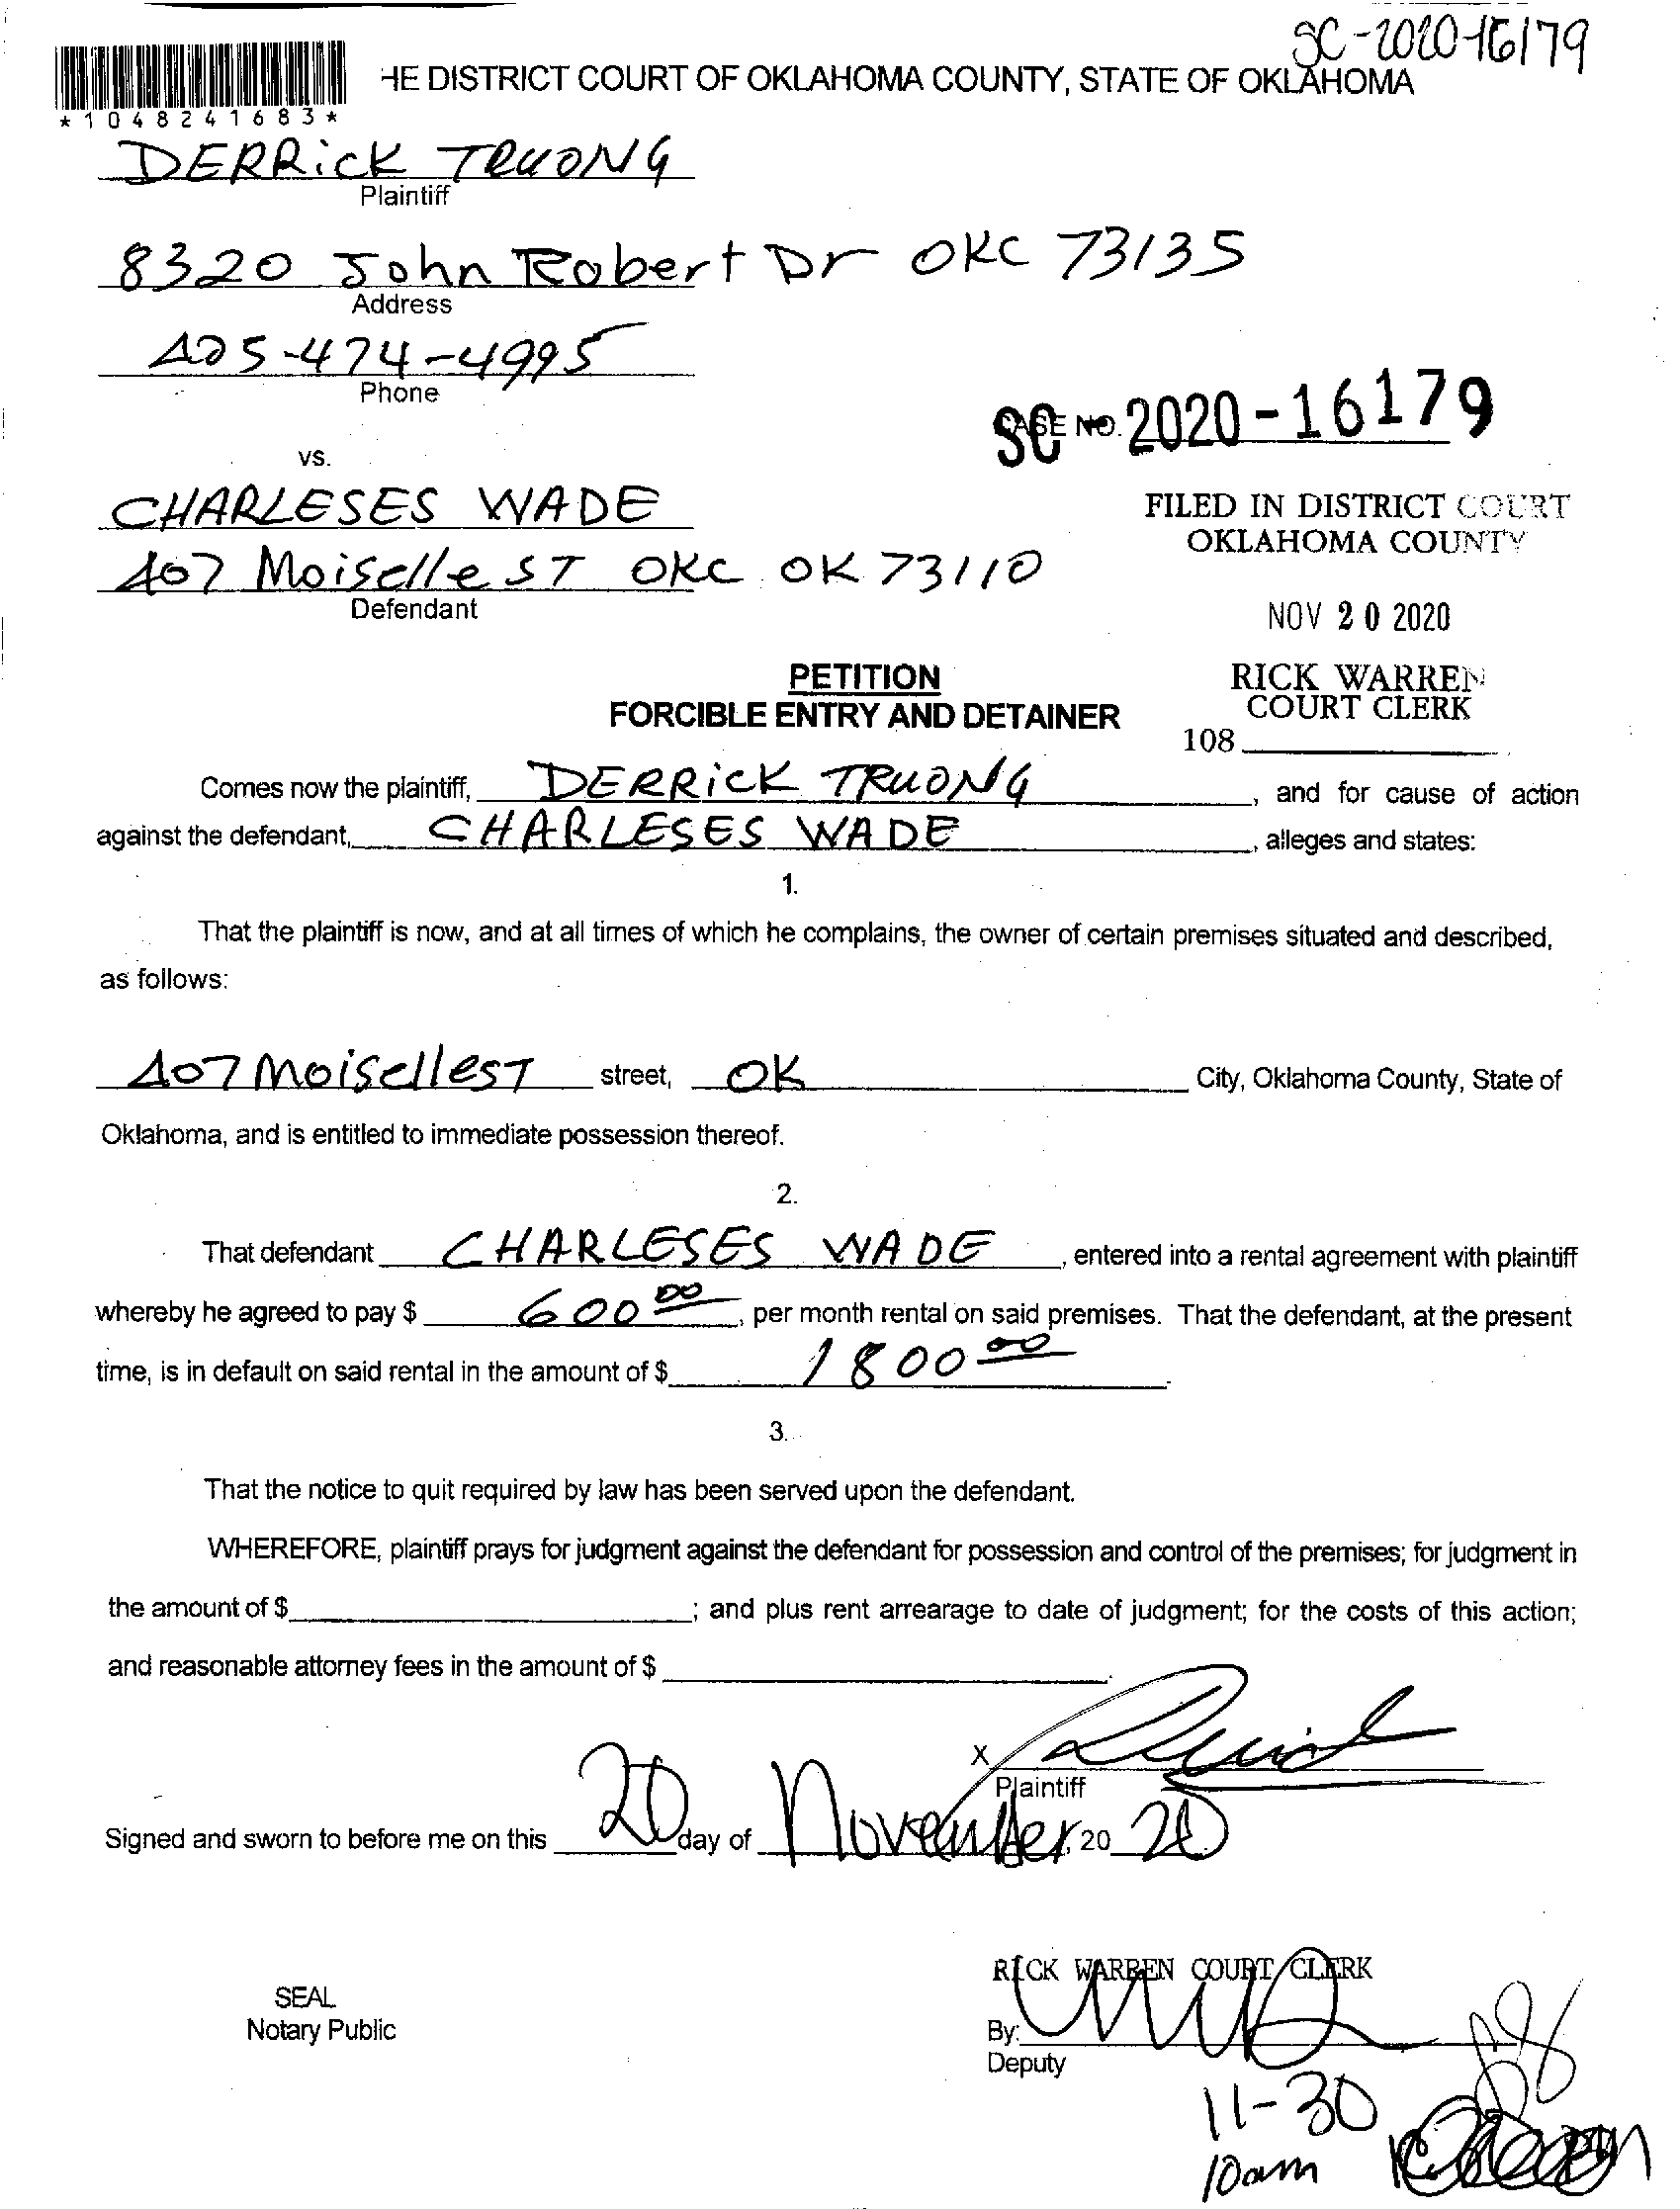 SC-2020-16179
HE DISTRICT COURT OF OKLAHOMA COUNTY, STATE OF OKLAHOMA
*1048241683*
DERRiCK TRUONG
Plaintiff
8320 John Robert Dr OKC 73135
Address
405-474-4995
Phone
SC CASE NO. 2020-16179
vs.
CHARLESES WADE
FILED IN DISTRICT COURT
OKLAHOMA COUNTY
407 Moiselle ST OKC OK 73110
Defendant
NOV 20 2020
PETITION
RICK WARREN
FORCIBLE ENTRY AND DETAINER
COURT CLERK
108
Comes now the plaintiff, DERRiCK TRUONG, and for cause of action
against the defendant, CHARLESES WADE, alleges and states:
1.
That the plaintiff is now, and at all times of which he complains, the owner of certain premises situated and described,
as follows:
407 MoiselleST street, OK City, Oklahoma County, State of
Oklahoma, and is entitled to immediate possession thereof.
2.
That defendant CHARLESES WADE, entered into a rental agreement with plaintiff
whereby he agreed to pay $ 600 00, per month rental on said premises. That the defendant, at the present
time, is in default on said rental in the amount of $ 1800 00.
3.
That the notice to quit required by law has been served upon the defendant.
WHEREFORE, plaintiff prays for judgment against the defendant for possession and control of the premises; for judgment in
the amount of $ ; and plus rent arrearage to date of judgment; for the costs of this action;
and reasonable attorney fees in the amount of $ .
X
Plaintiff
Signed and sworn to before me on this 20 day of November, 20 20
RICK WARREN COURT CLERK
SEAL
Notary Public
By:
Deputy
11-30
10am